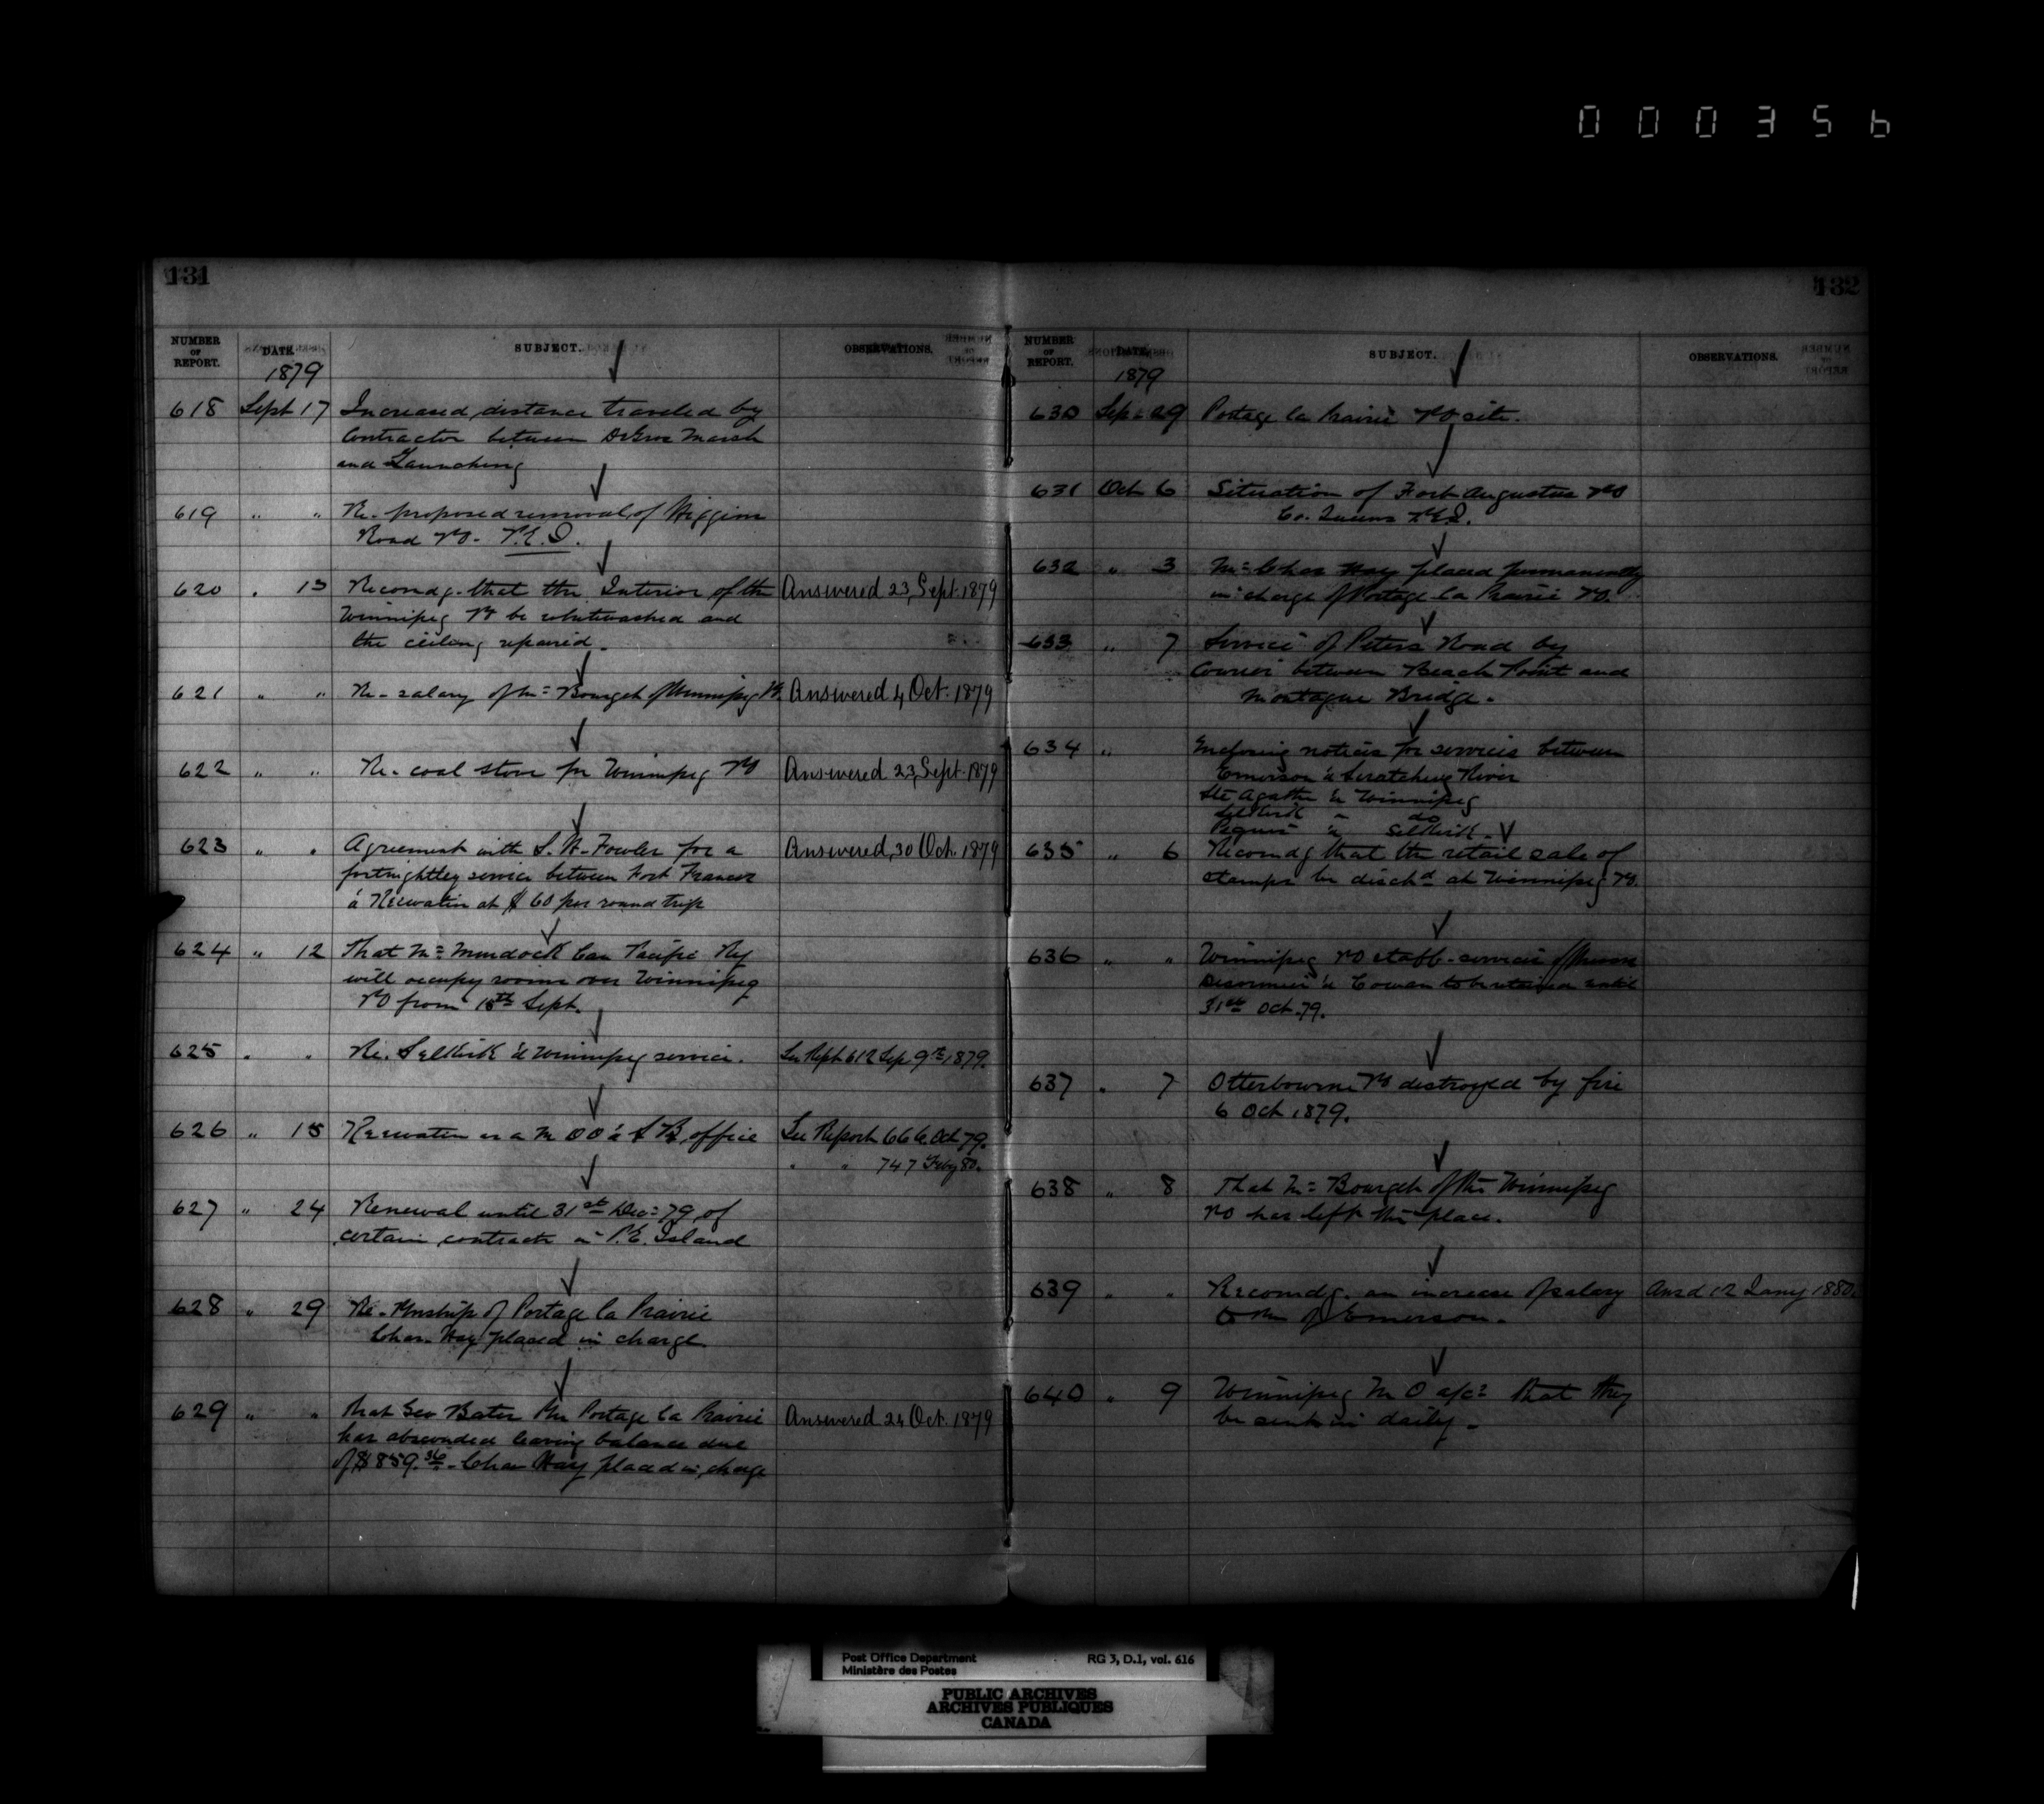 000356
131
NUMBER OF REPORT. DATE. SUBJECT. OBSERVATIONS.
1879
618 Sept 17 Increased distance traveled by
Contractor between DeGros Marsh
and Launching
619 " " Re. proposed removal of Higgins
Road PO. P.E.I.
620 . 13 Recomdg. that the Interior of the Answered 23, Sept. 1879
Winnipeg PO be whitewashed and
the ceiling repaired.
621 " " Re. salary of Mr Bourget of Winnipeg PO. Answered 4 Oct. 1879
622 " " Re. coal stove for Winnipeg PO Answered 23, Sept. 1879
623 " " Agreement with S. H. Fowler for a Answered, 30 Oct. 1879
fortnightley service between Fort Frances
& Keewatin at $60 per round trip
624 " 12 That Mr Murdock Can Pacific Ry
will occupy rooms over Winnipeg
PO from 15th Sept.
625 " " Re. Selkirk & Winnipeg service. See Rept 612 Sep 9th 1879.
626 " 15 Keewatin as a M OO & S B office See Report 666 Oct 79.
" " 747 Feby 80.
627 " 24 Renewal until 31st Dec: 79 of
certain contracts in P.E. Island
628 " 29 Re. Pmship of Portage la Prairie
Chas. Hay placed in charge
629 " " That Geo Bates Pm Portage la Prairie Answered 24 Oct. 1879
has absconded leaving balance due
of $859.36. Chas Hay placed in charge
132
NUMBER OF REPORT. DATE. SUBJECT. OBSERVATIONS.
1879
630 Sep: 29 Portage la Prairie PO site.
631 Oct 6 Situation of Fort Augustus PO
Co. Queens P.E.I.
632 " 3 Mr Chas Hay placed permanently
in charge of Portage la Prairie PO.
633 " 7 Service of Peters Road by
Courier between Beach Point and
Montague Bridge.
634 " Enclosing notices for services between
Emerson & Scratching River
Ste Agathe & Winnipeg
Selkirk " do
Peguis & Selkirk.
635 " 6 Recomdg that the retail sale of
stamps be disctd at Winnipeg PO.
636 " " Winnipeg PO staff. services of Messrs
& Cowan to be retained until
31st Oct. 79.
637 " 7 Otterbourne PO destroyed by fire
6 Oct 1879.
638 " 8 That Mr Bourget of the Winnipeg
PO has left the place.
639 " " Recomdg. an increase of salary Ansd 12 Jany 1880.
to Pm of Emerson.
640 " 9 Winnipeg M O a/cs that they
be sent in daily.
Post Office Department RG 3, D.1, vol. 616
Ministère des Postes
PUBLIC ARCHIVES
ARCHIVES PUBLIQUES
CANADA